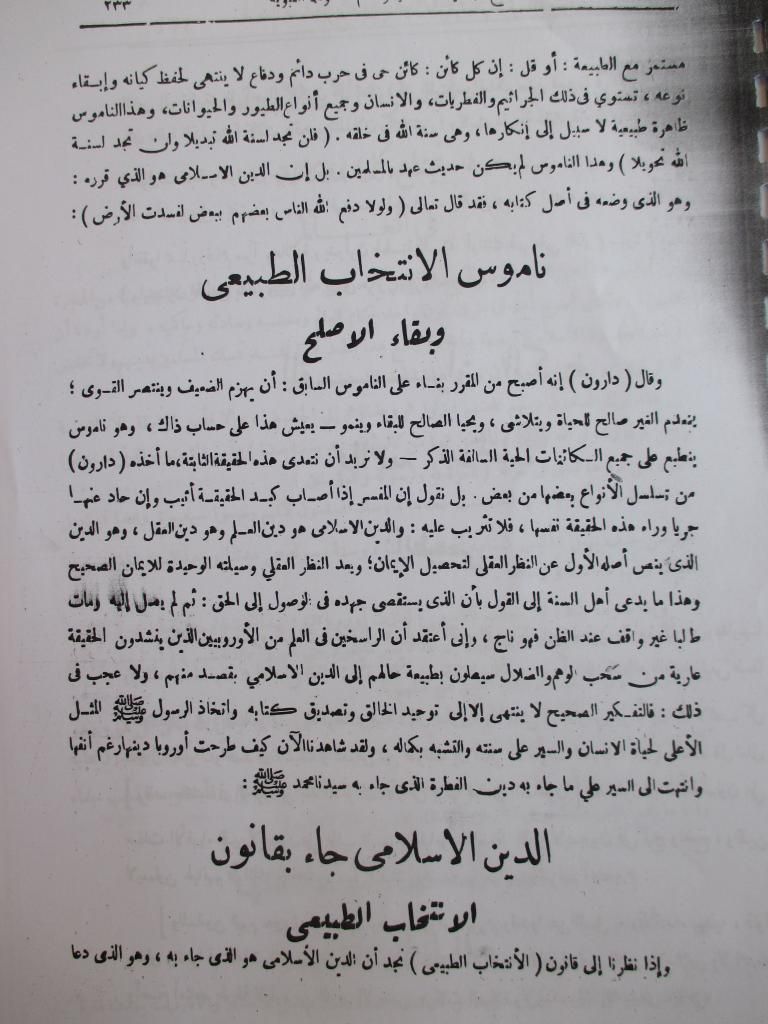 ٢٣٣
مستمر مع الطبيعة : أو قل : إن كل كائن : كائن حى فى حرب دائم ودفاع لا ينتهى لحفظ كيانه وإبقاء
نوعه ، تستوي فى ذلك الجراثيم والفطريات، والانسان وجميع أنواع الطيور والحيوانات، وهذا الناموس
ظاهرة طبيعية لا سبيل إلى إنكارها، وهى سنة الله فى خلقه . ( فلن تجد لسنة الله تبديلا وان تجد لسنة
الله تحويلا ) وهذا الناموس لم يكن حديث عهد بالمسلمين . بل إن الدين الاسلامى هو الذي قرره :
وهو الذى وضعه فى أصل كتابه ، فقد قال تعالى ( ولولا دفع الله الناس بعضهم ببعض لفسدت الأرض ) :
ناموس الانتخاب الطبيعى
وبقاء الاصلح
وقال ( دارون ) إنه أصبح من المقرر بناء على الناموس السابق : أن يهزم الضعيف وينتصر القوى ؛
ينعدم الغير صالح للحياة ويتلاشى ، ويحيا الصالح للبقاء وينمو — يعيش هذا على حساب ذاك ، وهو ناموس
ينطبع على جميع الكائنات الحية السالفة الذكر — ولا نريد أن نتعدى هذه الحقيقة الثابتة، ما أخذه ( دارون )
من تسلسل الأنواع بعضها من بعض . بل نقول إن المفسر إذا أصاب كبد الحقيقة أثيب وإن حاد عنها
جريا وراء هذه الحقيقة نفسها ، فلا تثريب عليه : والدين الاسلامى هو دين العلم وهو دين العقل ، وهو الدين
الذى ينص أصله الأول عن النظر العقلى لتحصيل الإيمان؛ ويعد النظر العقلي وسيلته الوحيدة للايمان الصحيح
وهذا ما يدعى أهل السنة إلى القول بأن الذى يستقصى جهده فى الوصول إلى الحق : ثم لم يصل إليه ومات
طالبا غير واقف عند الظن فهو ناج ، وإنى أعتقد أن الراسخين فى العلم من الأوروبيين الذين ينشدون الحقيقة
عارية من سحب الوهم والضلال سيصلون بطبيعة حالهم إلى الدين الاسلامي بقصد منهم ، ولا عجب فى
ذلك : فالتفكير الصحيح لا ينتهى إلا إلى توحيد الخالق وتصديق كتابه واتخاذ الرسول ﷺ المثل
الأعلى لحياة الانسان والسير على سنته والتشبه بكماله ، ولقد شاهدنا الآن كيف طرحت أوروبا دينها رغم أنفها
وانتهت الى السير علي ما جاء به دين الفطرة الذى جاء به سيدنا محمد ﷺ :
الدين الاسلامى جاء بقانون
الانتخاب الطبيعى
وإذا نظرنا إلى قانون ( الأنتخاب الطبيعى ) نجد أن الدين الأسلامى هو الذى جاء به ، وهو الذى دعا